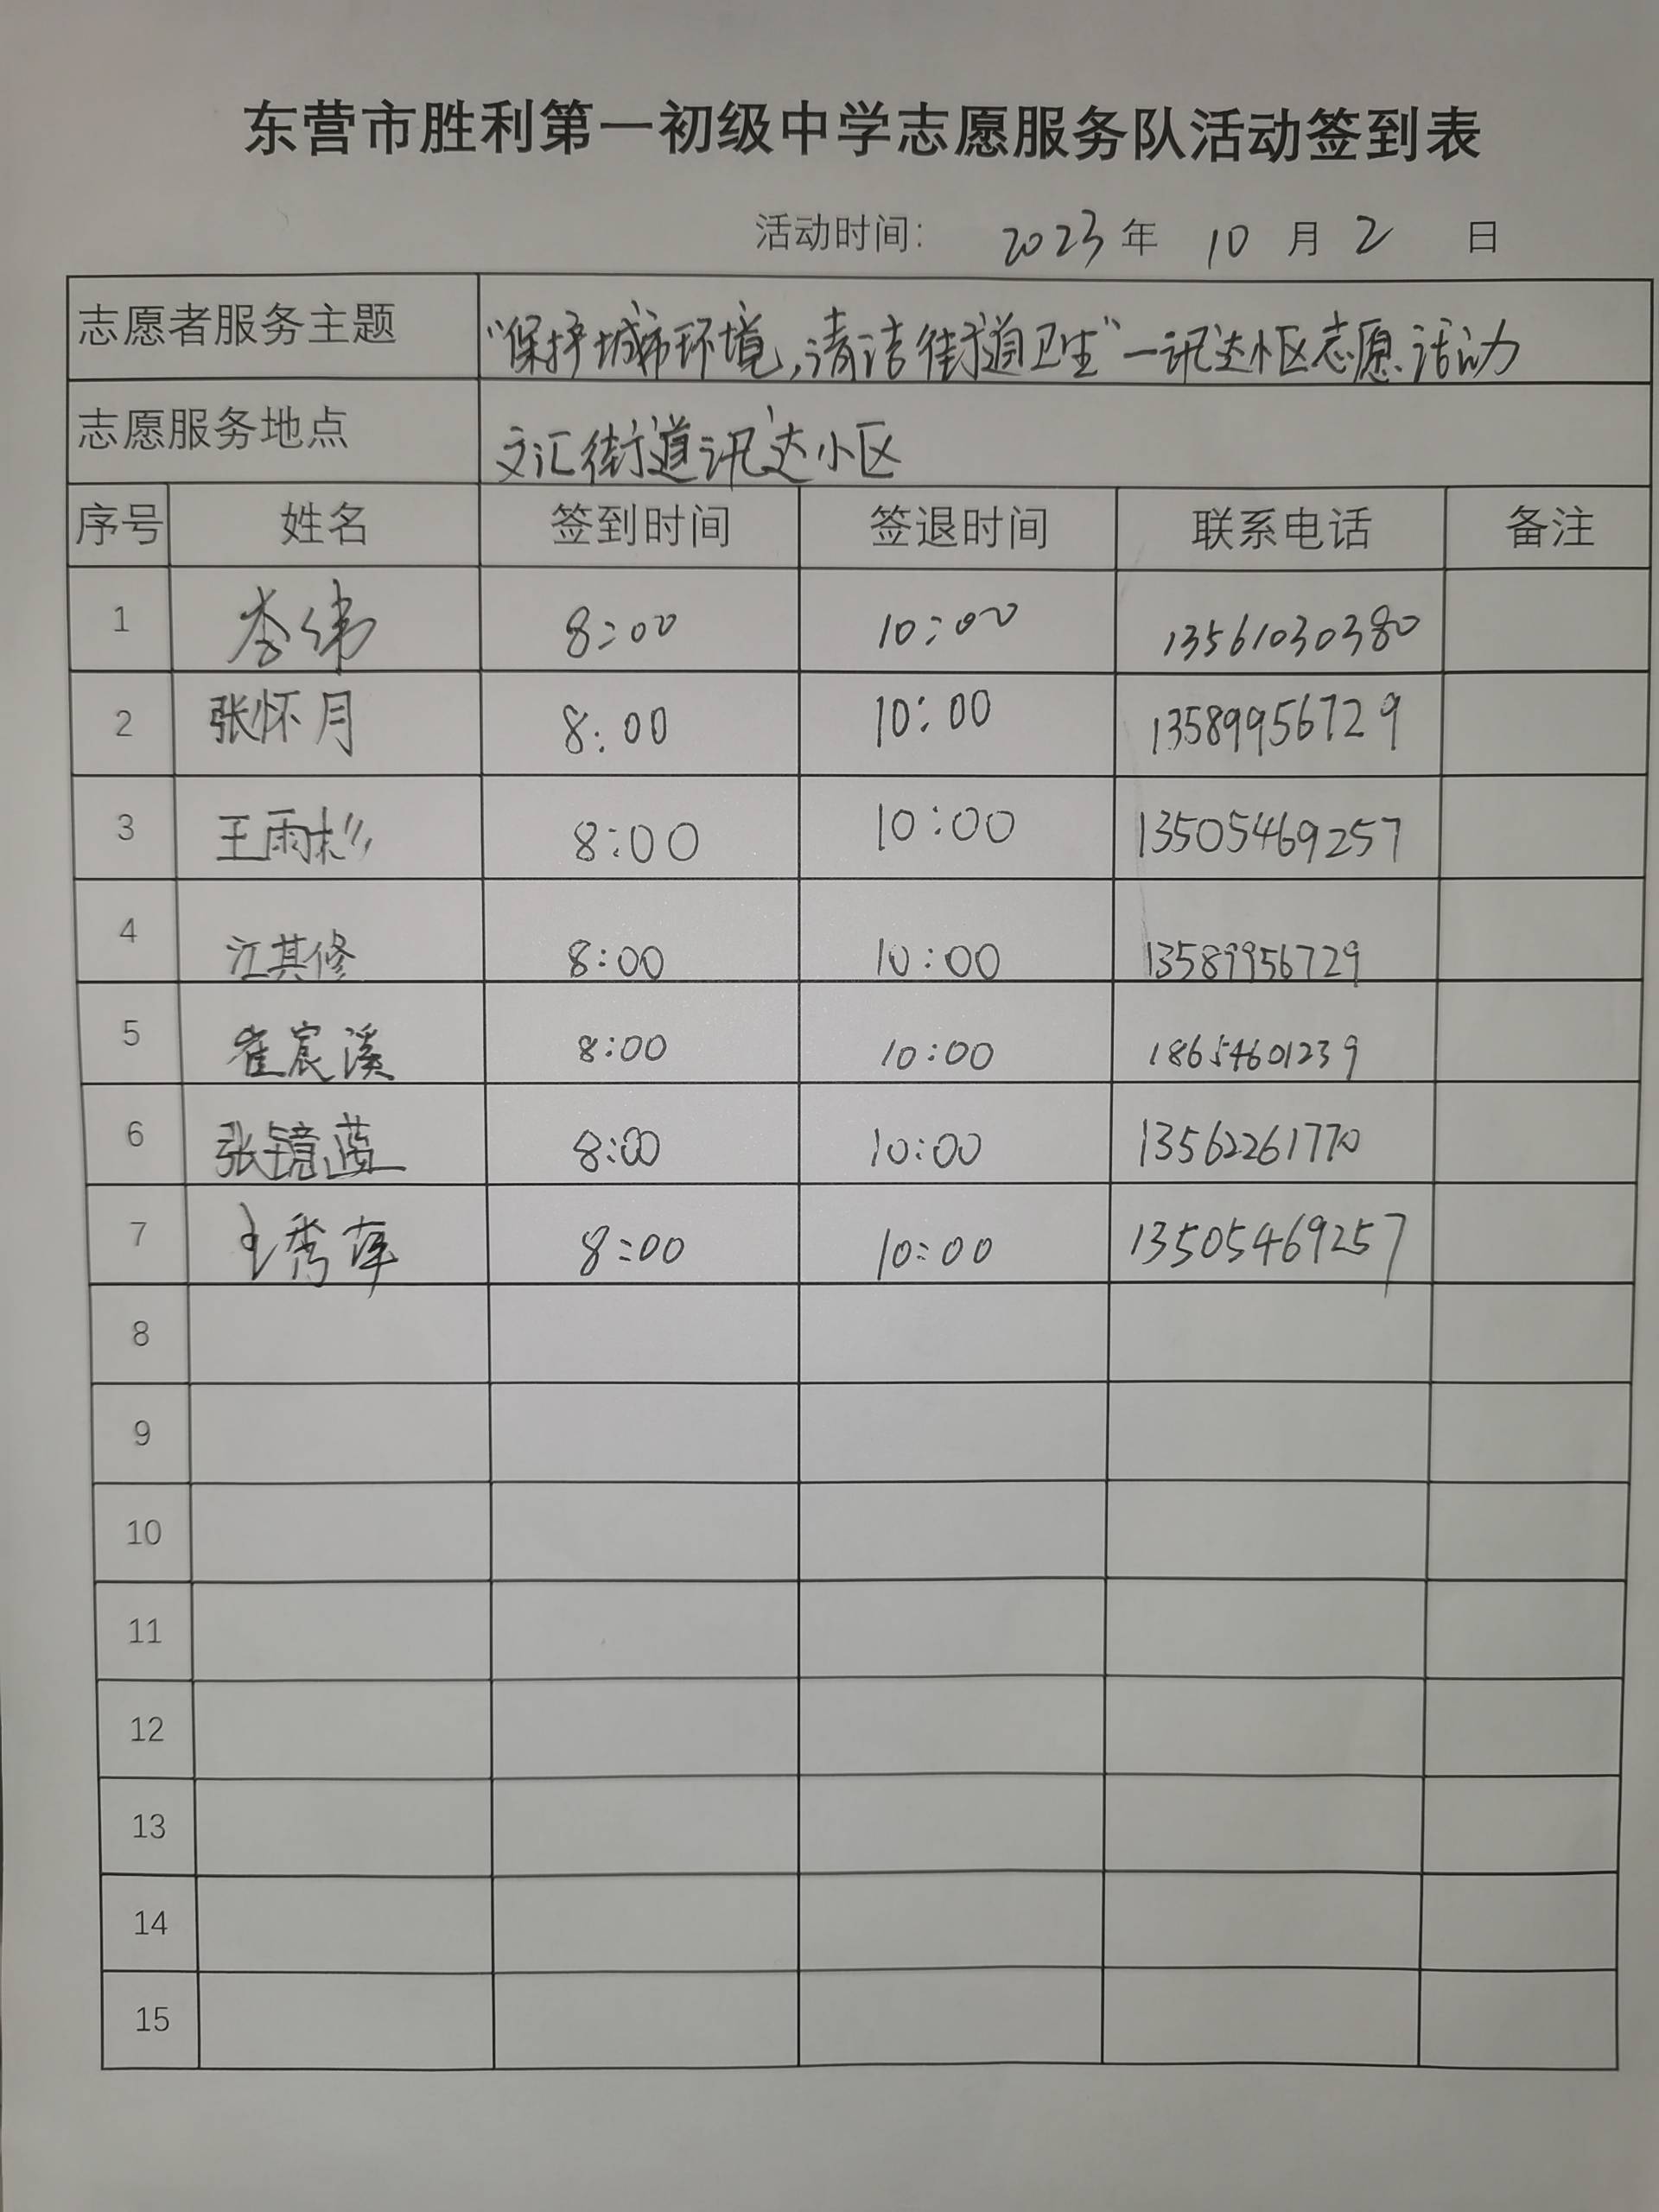 东营市胜利第一初级中学志愿服务队活动签到表
活动时间： 2023 年 10 月 2 日
志愿者服务主题 “保护城市环境，清洁街道卫生”—讯达小区志愿活动
志愿服务地点 文汇街道讯达小区
序号 姓名 签到时间 签退时间 联系电话 备注
1 李伟 8:00 10:00 13561030380
2 张怀月 8:00 10:00 13589956729
3 王雨杉 8:00 10:00 13505469257
4 江其修 8:00 10:00 13589956729
5 崔宸溪 8:00 10:00 18654601239
6 张镜蓝 8:00 10:00 13562261770
7 王秀萍 8:00 10:00 13505469257
8
9
10
11
12
13
14
15